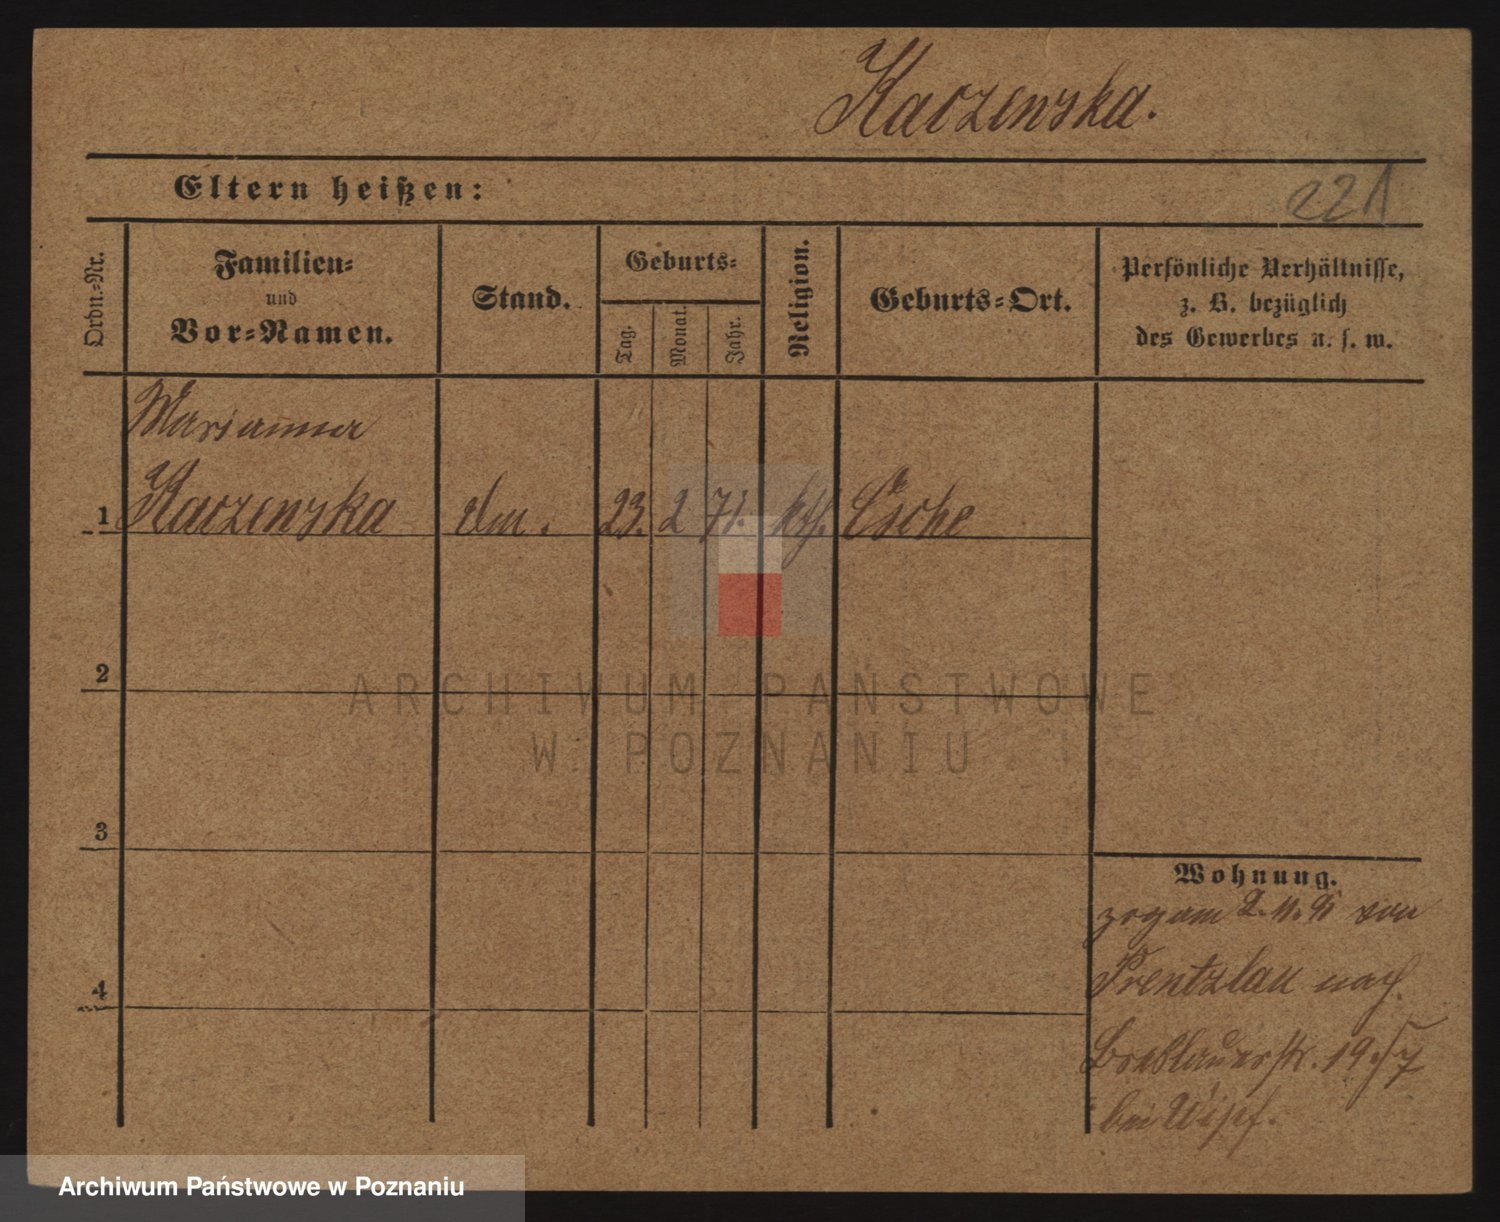 Kaczenska.
Eltern heißen:
221
Ordn.-Nr.
Familien-
und
Vor-Namen.
Stand.
Geburts-
Tag.
Monat.
Jahr.
Religion.
Geburts-Ort.
Persönliche Verhältnisse,
z. B. bezüglich
des Gewerbes u. s. w.
Marianna
1 Kaczenska 23. 2 71. kth.
2
ARCHIWUM PAŃSTWOWE
W POZNANIU
3
Wohnung.
zog am 2. 11. 91 von
4
Prentzlau nach
Breslauerstr. 19
bei
Archiwum Państwowe w Poznaniu